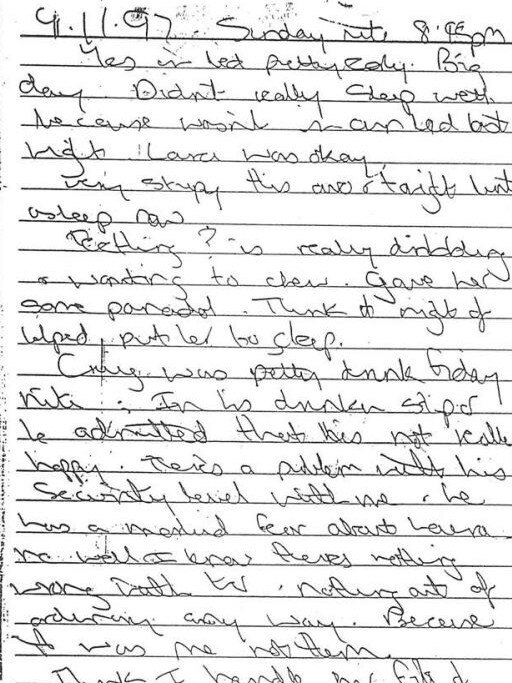 9.11.97. Sunday nite 8:45pm
Yes in bed pretty early. Big
day. Didn't really sleep well
because wasn't in own bed last
night. Laura was okay,
very sleepy this avo & tonight but
asleep now
Teething? is really dribbling
& wanting to chew. Gave her
some panadol. Think it might of
helped put her to sleep.
Craig was pretty drunk Friday
nite. In his drunken stupor
he admitted that he's not really
happy. There's a problem with his
security level with me & he
has a morbid fear about Laura
well I know there's nothing
wrong with her. nothing out of
ordinary any way. Because
it was me not them
Think I handle